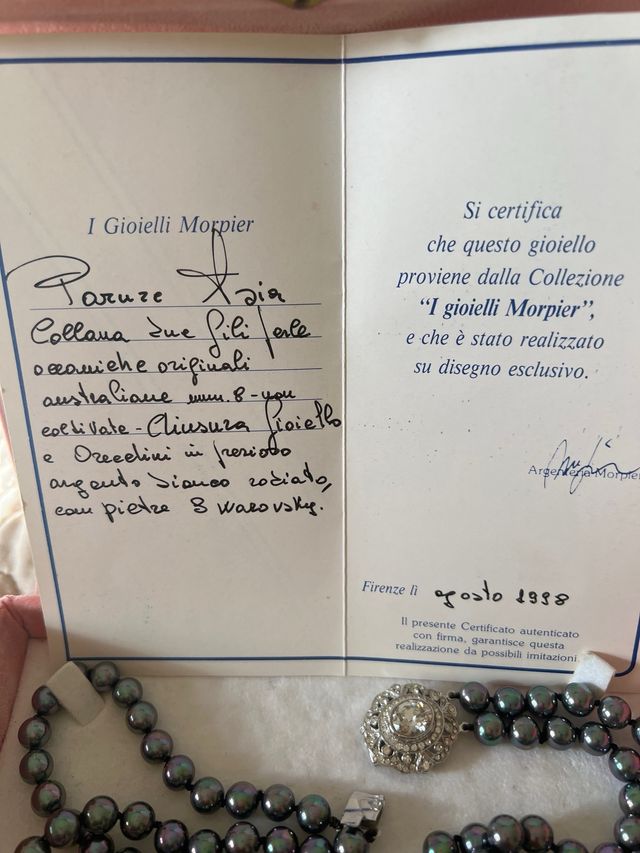 I Gioielli Morpier
Parure Asia
Collana due fili perle
oceaniche originali
australiane mm. 8 - non
coltivate - Chiusura Gioiello
e Orecchini in prezioso
argento bianco rodiato,
con pietre Swarovsky.
Si certifica
che questo gioiello
proviene dalla Collezione
“I gioielli Morpier”,
e che è stato realizzato
su disegno esclusivo.
Argenteria Morpier
Firenze lì agosto 1998
Il presente Certificato autenticato
con firma, garantisce questa
realizzazione da possibili imitazioni.